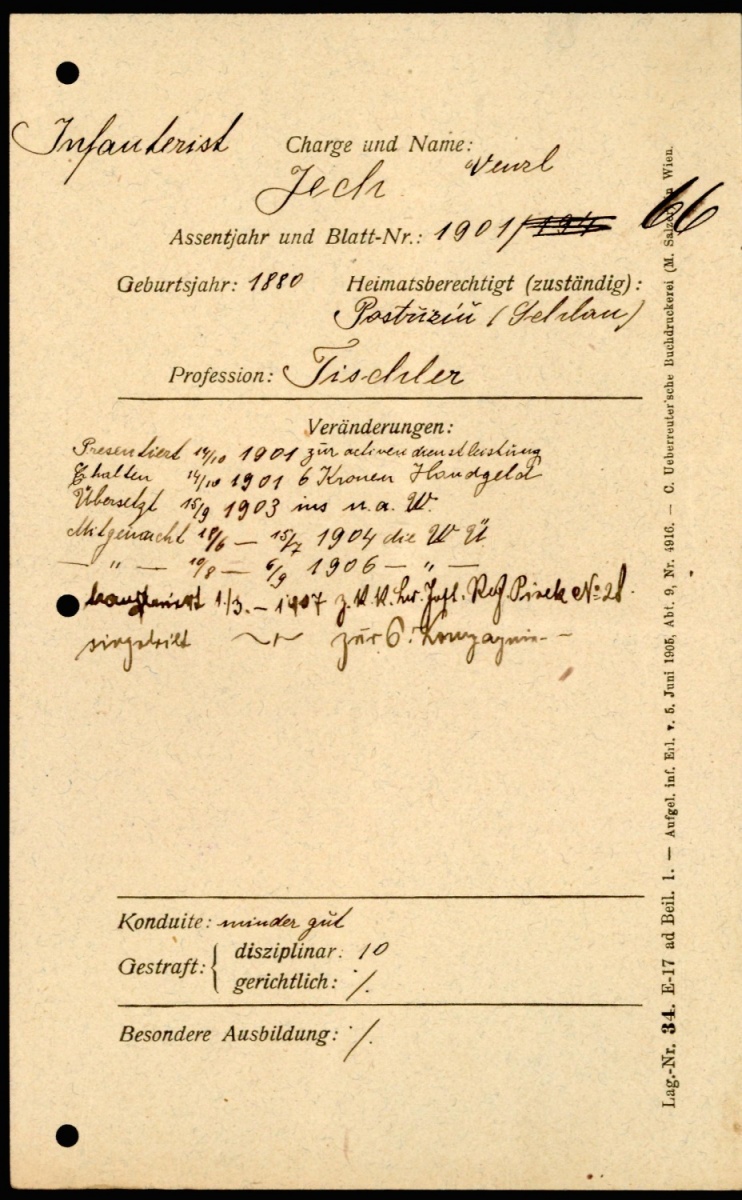 Infanterist Charge und Name:
Jech Venzl
Assentjahr und Blatt-Nr.: 1901/ 194 66
Geburtsjahr: 1880 Heimatsberechtigt (zuständig):
Postuziū (Selčan)
Profession: Tischler
Veränderungen:
Presentiert 14/10 1901 zur activen dienstleistung
Ehalten 14/10 1901 6 Kronen Handgeld
Übersetzt 15/9 1903 ins n.a. W.
Mitgemacht 18/6 — 15/7 1904 die W Ü
— " — 10/8 — 6/9 1906 — " —
1/3. – 1907 z. K. K. Pisek No 28.
zur 6. Kompagnie. –
Konduite: minder gut
Gestraft: disziplinar: 10
gerichtlich: ·/.
Besondere Ausbildung: ·/.
Lag.-Nr. 34. E-17 ad Beil. 1. — Aufgel. inf. Erl. v. 5. Juni 1905, Abt. 9, Nr. 4916. — C. Ueberreuter'sche Buchdruckerei (M. Salzer) in Wien.